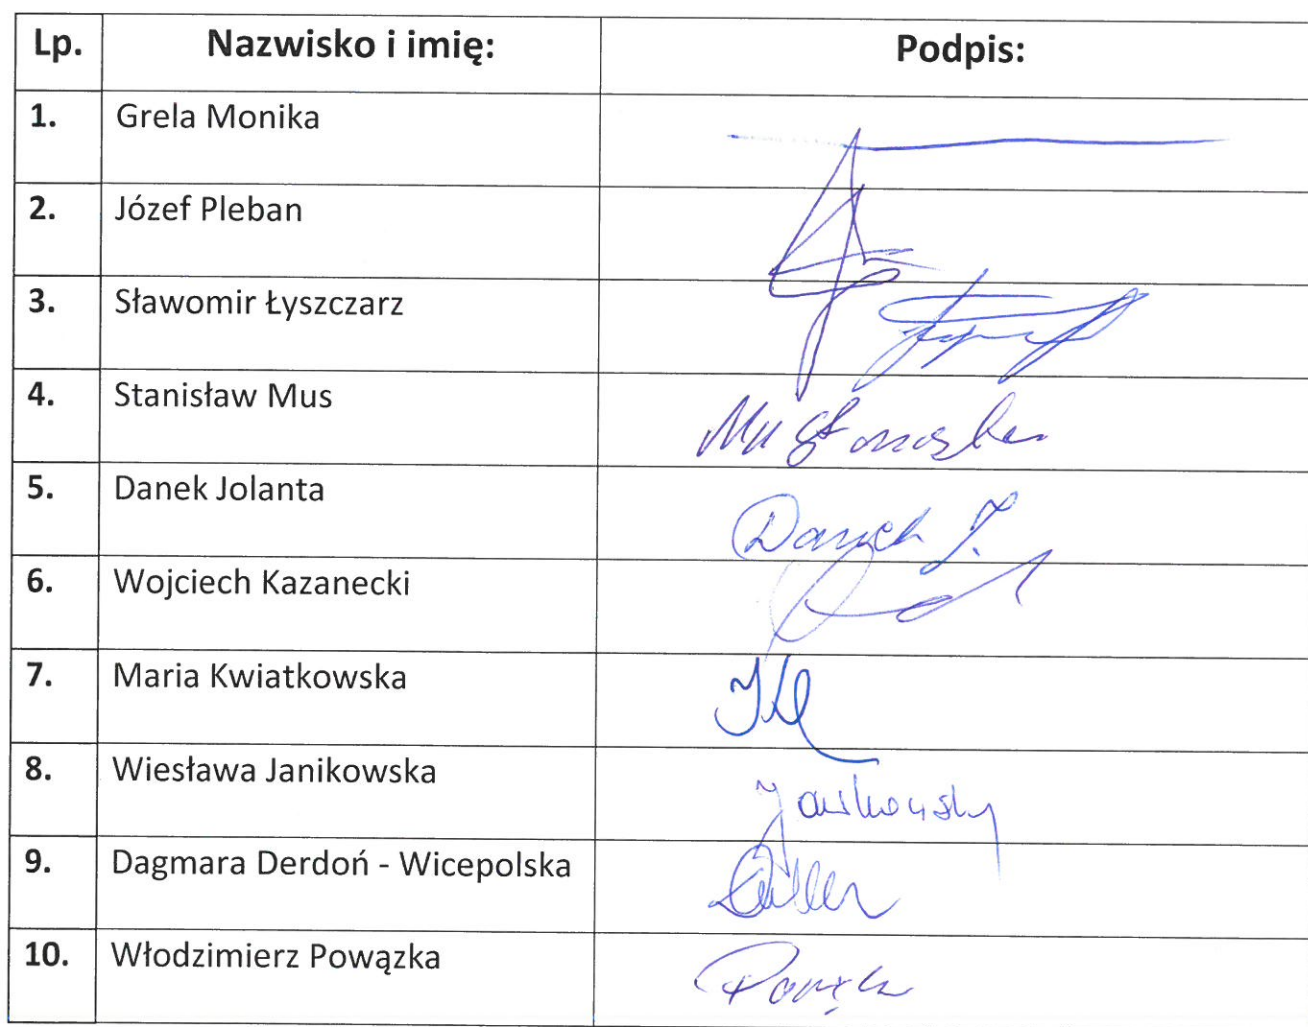 Lp. Nazwisko i imię: Podpis:
1. Grela Monika
2. Józef Pleban
3. Sławomir Łyszczarz
4. Stanisław Mus
5. Danek Jolanta Danek J.
6. Wojciech Kazanecki
7. Maria Kwiatkowska
8. Wiesława Janikowska
9. Dagmara Derdoń - Wicepolska
10. Włodzimierz Powązka